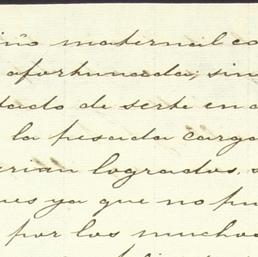 iño maternal co
afortunada; sin
tado de serte en a
la pesada carga
erian logrados, s
ues ya que no pu
por los muchos